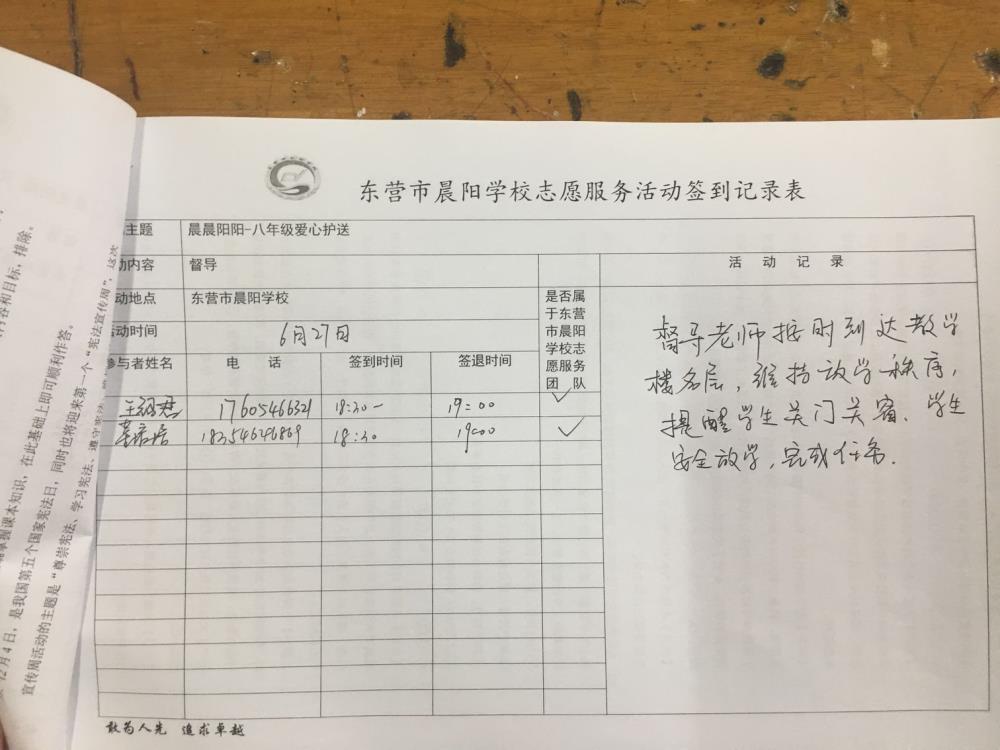 东营市晨阳学校志愿服务活动签到记录表
主题 晨晨阳阳-八年级爱心护送
动内容 督导
活 动 记 录
动地点 东营市晨阳学校
是否属于东营市晨阳学校志愿服务团 队
动时间 6月27日
参与者姓名 电 话 签到时间 签退时间
17605466321 18:30- 19:00 ✓
18:30 19:00 ✓
督导老师按时到达教学
楼各层,维持放学秩序,
提醒学生关门关窗、学生
安全放学,完成任务.
敢为人先 追求卓越
掌握课本知识,在此基础上即可顺利作答。
12月4日,是我国第五个国家宪法日,同时也将迎来第一个“宪法宣传周”,这次
宣传周活动的主题是“尊崇宪法、学习宪法、遵守宪法、
内容和目标,排除。